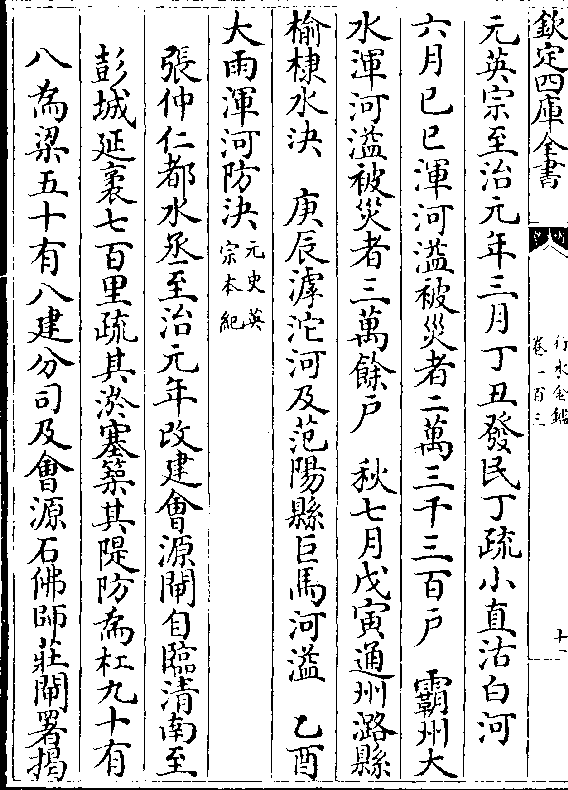 欽定四庫全書
行水金鑑
卷一百三
十一
元英宗至治元年三月丁丑發民丁疏小直沽白河
六月己巳渾河溢被災者二萬三千三百戶　霸州大
水渾河溢被災者三萬餘戶　秋七月戊寅通州潞縣
榆棣水決　庚辰滹沱河及范陽縣巨馬河溢　乙酉
大雨渾河防決
元史英
宗本紀
張仲仁都水丞至治元年改建會源閘自臨清南至
彭城延袤七百里疏其淤塞築其隄防為杠九十有
八為梁五十有八建分司及會源石佛師莊閘署揭